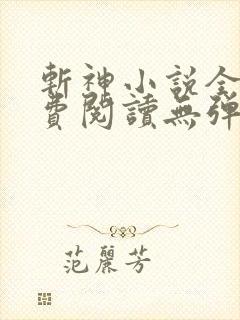 斬神小說全
費閱讀無彈
范麗芳